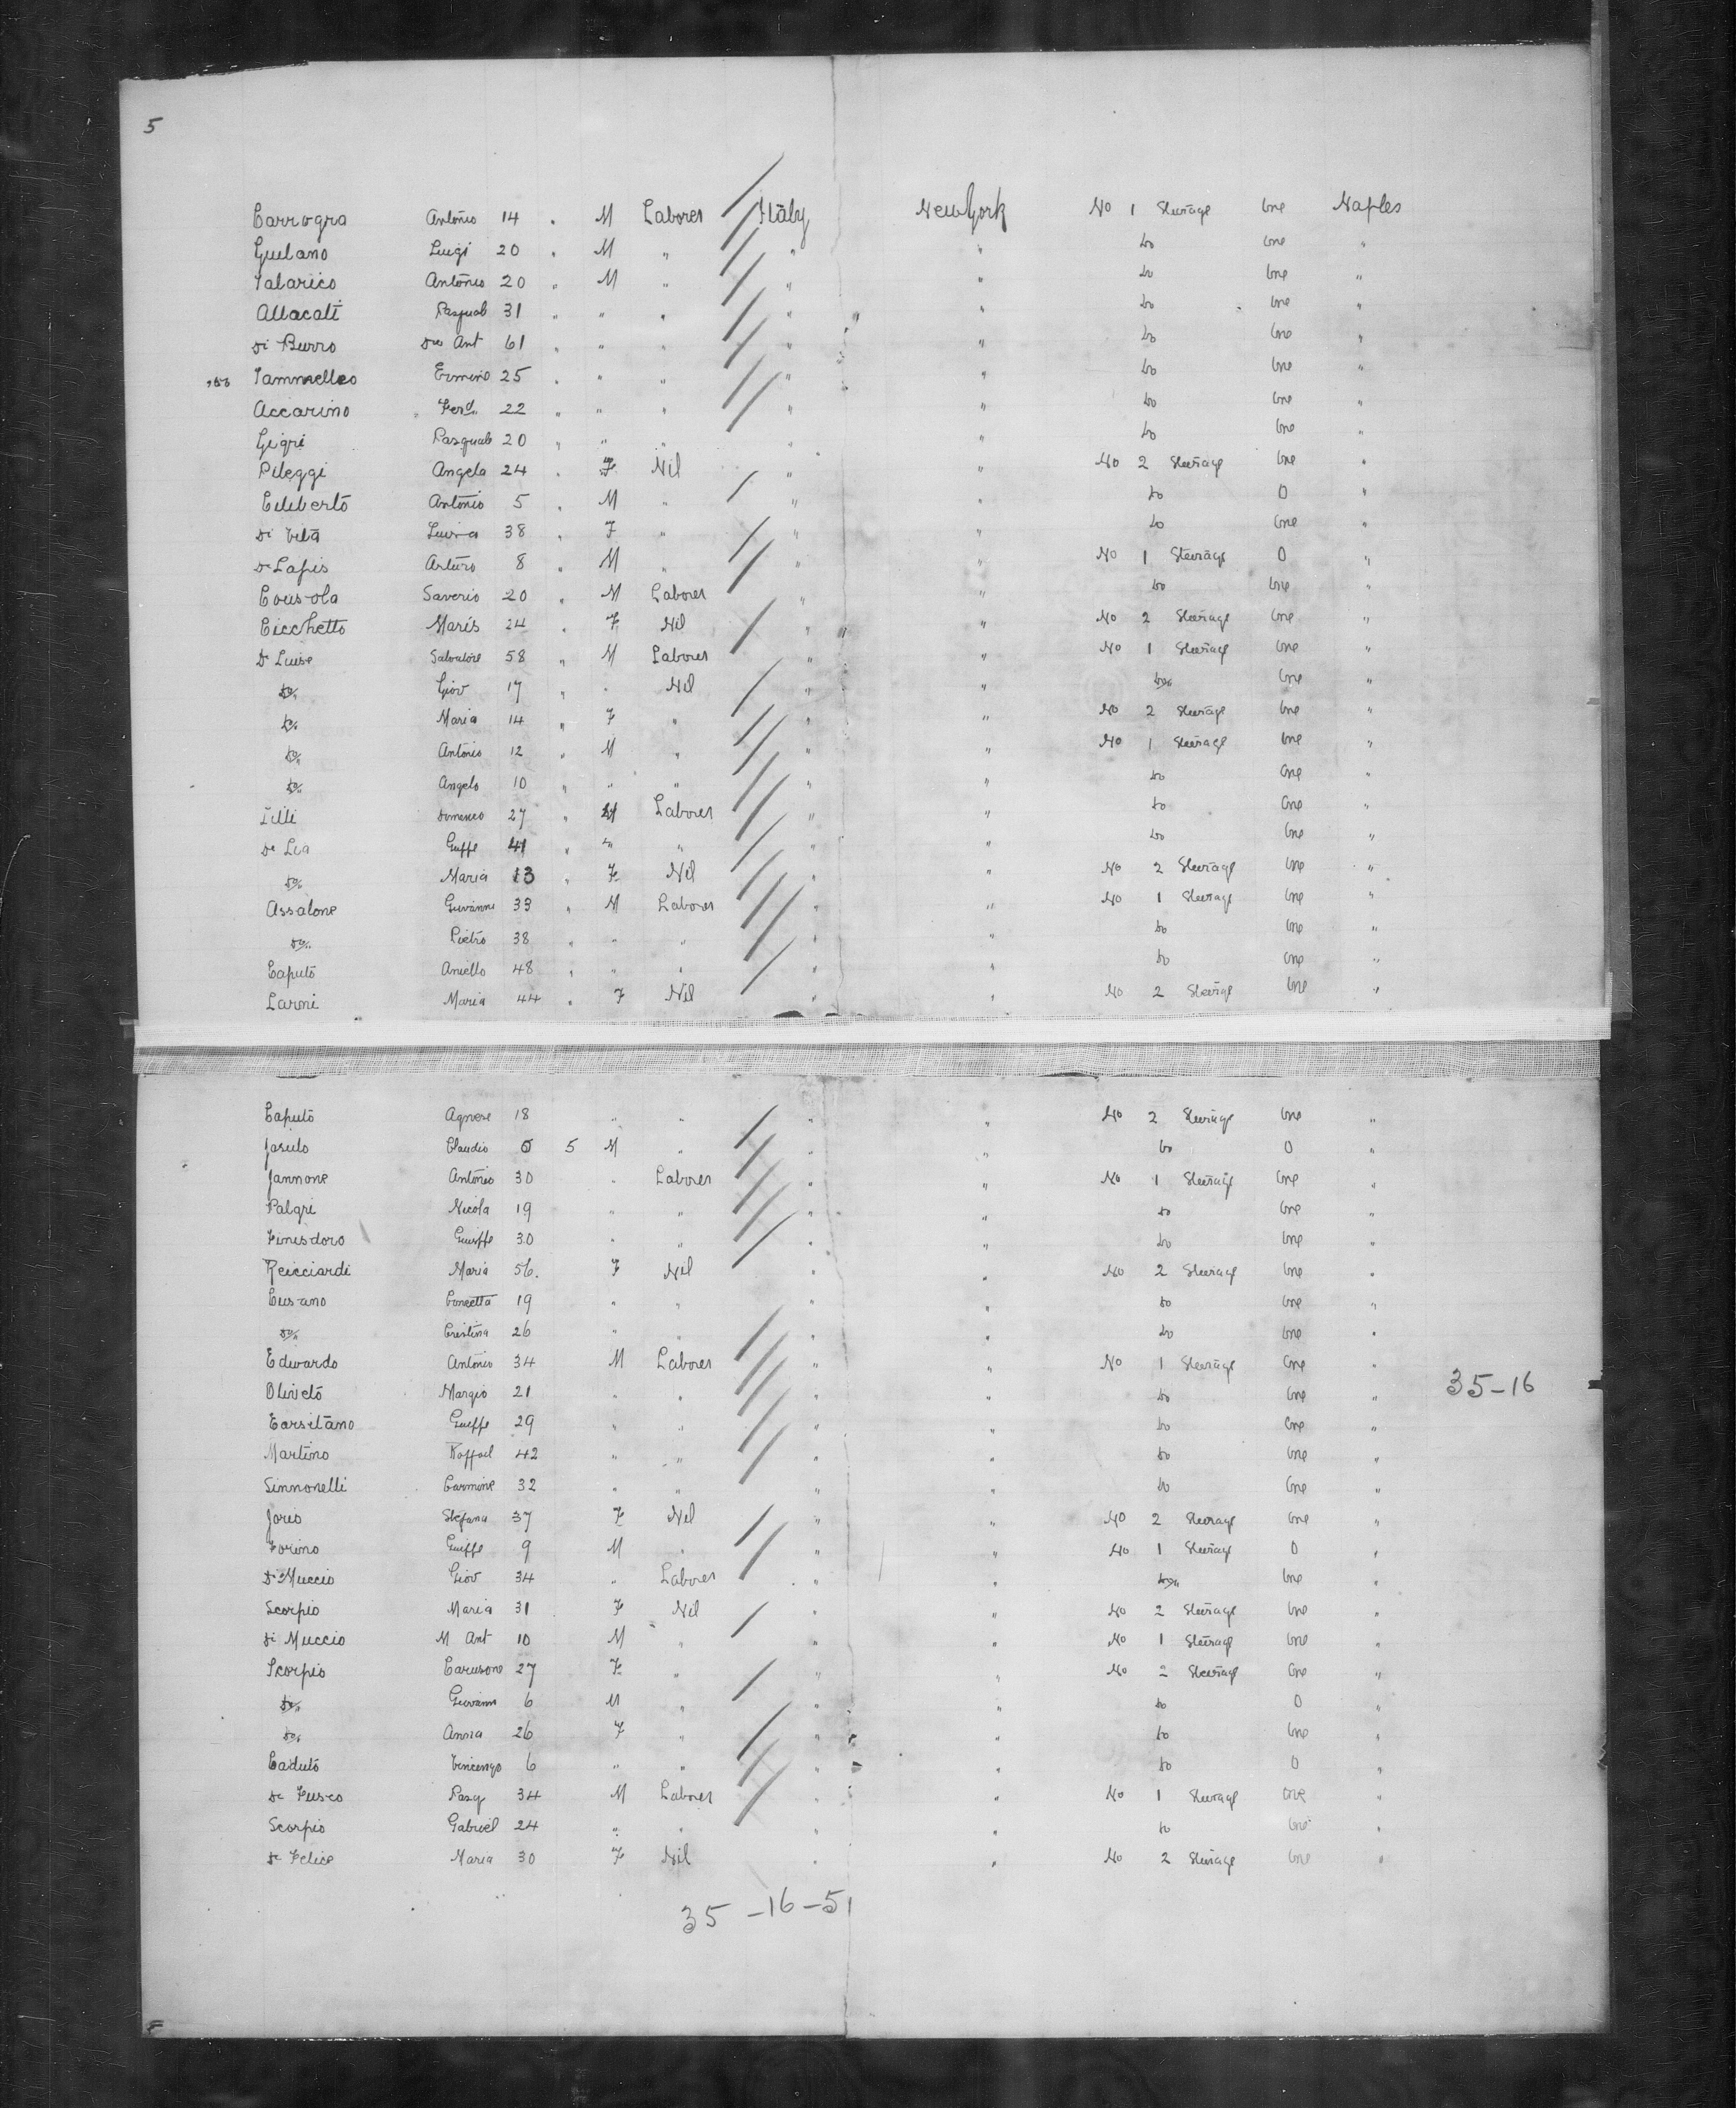 5
Carrogra Antonio 14 " M Laborer Italy New York No 1 Steerage One Naples
Giulano Luigi 20 " M " " " do One "
Talarico Antonio 20 " M " " " do One "
Allacati Pasquale 31 " " " " " do One "
Di Burro Ant 61 " " " " " do One "
Iammelleo Ermino 25 " " " " " do One "
Accarino Ferd 22 " " " " " do One "
Gigri Pasquale 20 " " " " " do One "
Pileggi Angela 24 " F Nil " " No 2 Steerage One "
Ciliberto Antonio 5 " M " " " do 0 "
Di Vita Luisa 38 " F " " " do One "
De Lapis Arturo 8 " M " " " No 1 Steerage 0 "
Cousola Saverio 20 " M Laborer " " do One "
Cicchetto Maria 24 " F Nil " " No 2 Steerage One "
De Luise Salvatore 58 " M Laborer " " No 1 Steerage One "
do Giov 17 " " Nil " " do One "
do Maria 14 " F " " " No 2 Steerage One "
do Antonio 12 " M " " " No 1 Steerage One "
do Angelo 10 " " " " " do One "
Lilli Domenico 27 " M Laborer " " do One "
De Lia Guiffe 41 " " " " " do One "
do Maria 13 " F Nil " " No 2 Steerage One "
Assalone Giovanni 33 " M Laborer " " No 1 Steerage One "
do Pietro 38 " " " " " do One "
Caputo Aniello 48 " " " " " do One "
Larini Maria 44 " F Nil " " No 2 Steerage One "
Caputo Agnese 18 " " " " No 2 Steerage One "
Jasulo Claudio 5 5 M " " " do 0 "
Jannone Antonio 30 " Laborer " " No 1 Steerage One "
Palgri Nicola 19 " " " " do One "
Finisdoro Guiseffe 30 " " " " do One "
Ricciardi Maria 56 F Nil " " No 2 Steerage One "
Cusano Concetta 19 " " " " do One "
do Cristina 26 " " " " do One "
Edwardo Antonio 34 M Laborer " " No 1 Steerage One "
Oliveto Margio 21 " " " " do One " 35-16
Carsitano Guiffe 29 " " " " do One "
Martino Raffael 42 " " " " do One "
Sinnonelli Carmine 32 " " " " do One "
Jorio Stefana 37 F Nil " " No 2 Steerage One "
Forino Guiffe 9 M " " " No 1 Steerage 0 "
Di Muccio Giov 34 " Laborer " " do One "
Scorpio Maria 31 F Nil " " No 2 Steerage One "
Di Muccio M Ant 10 M " " " No 1 Steerage One "
Scorpio Carusone 27 F " " " No 2 Steerage One "
do Giovanni 6 M " " " do 0 "
do Anna 26 F " " " do One "
Caduto Vincenzo 6 " " " " do 0 "
De Fusco Pasq 34 M Laborer " " No 1 Steerage One "
Scorpio Gabriel 24 " " " " do One "
De Felice Maria 30 F Nil " " No 2 Steerage One "
35-16-51